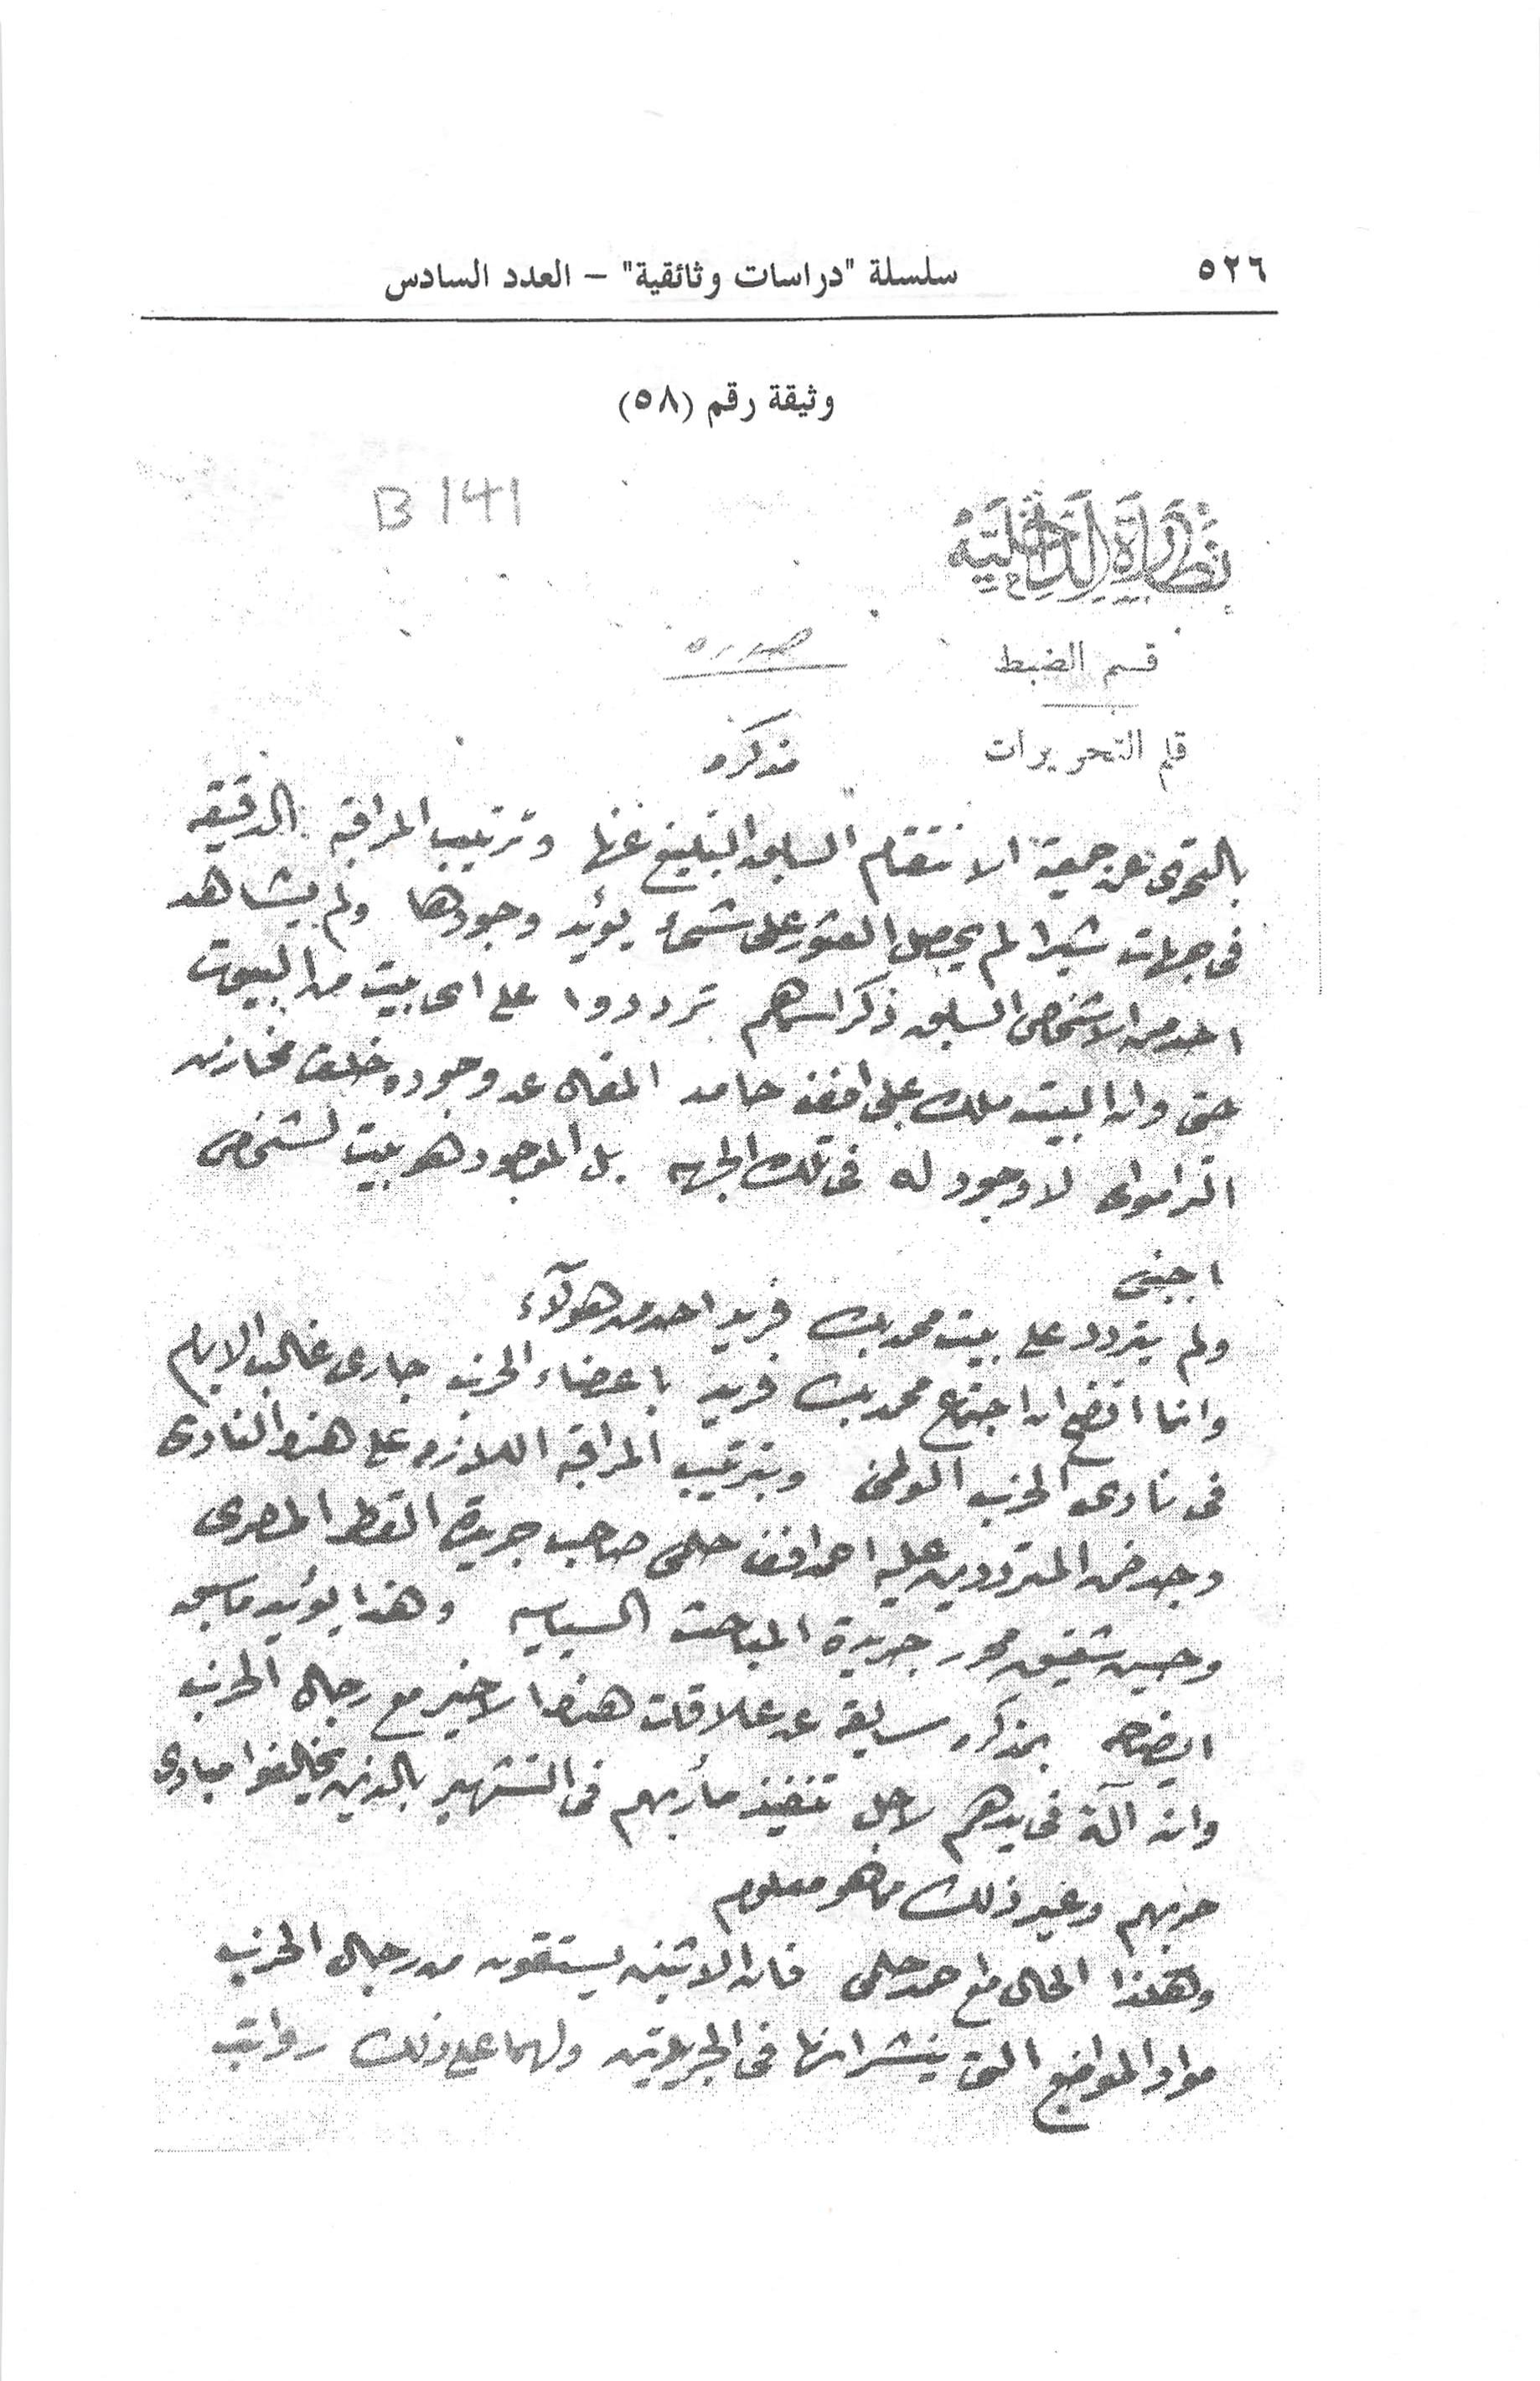 ٥٢٦
سلسلة "دراسات وثائقية" – العدد السادس
وثيقة رقم (٥٨)
B 141
نظارة الداخلية
صوره
قسم الضبط
قلم التحريرات
مذكره
بالتحرى عن جمعية الانتقام السابق التبليغ عنها وترتيب المراقبة الدقيقه
فى جهات شبرا لم يحصل العثور على شئ يؤيد وجودها ولم يشاهد
احد من الاشخاص السابق ذكر اسماهم ترددوا على اى بيت من البيوت
حتى وان البيت ملك على افندى حامد المقال عن وجوده خلف مخازن
الترامواى لا وجود له فى تلك الجهه بل الموجود هو بيت لشخص
اجنبى
ولم يتردد على بيت محمد بك فريد احد من هولآء
وانما اتضح ان اجتماع محمد بك فريد باعضاء الحزب جارى غالب الايام
فى نادى الحزب الوطنى وبترتيب المراقبة اللازمه على هذا النادى
وجد ضمن المترددين عليه احمد افندى حلمى صاحب جريدة القطر المصرى
وحسين شفيق محرر جريدة المباحث السياسيه وهذا يؤيد ماسبق
ايضاحه بمذكره سابقه عن علاقات هذا الاخير مع رجال الحزب
وانه آلة فى يدهم لاجل تنفيذ مأربهم فى التشهير بالذين يخالفوا مبادى
حزبهم وغير ذلك مما هو معلوم
وهكذا الحال مع احمد حلمى فان الاثنين يستقون من رجال الحزب
مواد المواضيع التى ينشرانها فى الجريدتين ولهما على ذلك رواتب